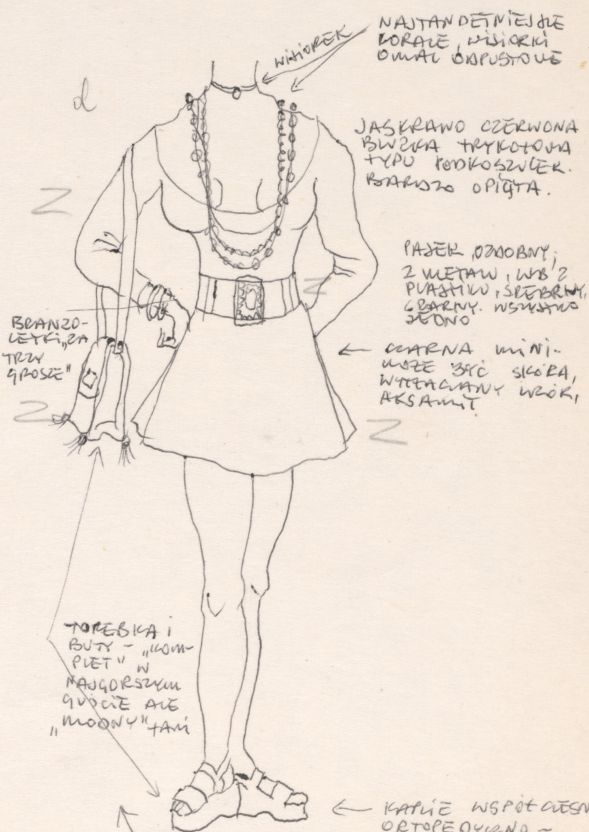 WISIOREK
NAJTANDETNIEJSZE
KORALE, WISIORKI
OMAL ODPUSTOWE
JASKRAWO CZERWONA
BLUZKA TRYKOTOWA
TYPU PODKOSZULEK.
BARDZO OPIĘTA.
PASEK OZDOBNY,
Z METALU, LUB Z
PLASTIKU, SREBRNY,
CZARNY. WSZYSTKO
JEDNO
BRANZO-
LETKI „ZA
TRZY
GROSZE"
CZARNA MINI-
MOŻE BYĆ SKÓRA,
WYTŁACZANY WZÓR,
AKSAMIT
TOREBKA I
BUTY - „KOM-
PLET" W
NAJGORSZYM
GUŚCIE ALE
„MODNY" TANI
KAPCIE WSPÓŁCZESN
ORTOPEDYCZNO -